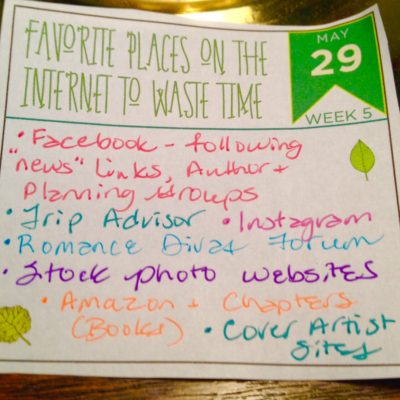 FAVORITE PLACES ON THE
INTERNET TO WASTE TIME
MAY
29
WEEK 5
• Facebook - following
"news" Links, Author +
Planning Groups
• Trip Advisor • Instagram
• Romance Divas Forum
• Stock photo websites
• Amazon + Chapters
(Books) • Cover Artist
Sites